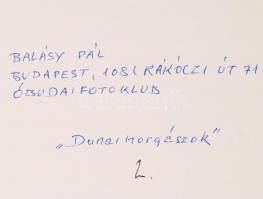 BALÁSY PÁL
BUDAPEST, 1081 RÁKÓCZI ÚT 71
ÓBUDAI FOTOKLUB
„Dunai horgászok”
2.